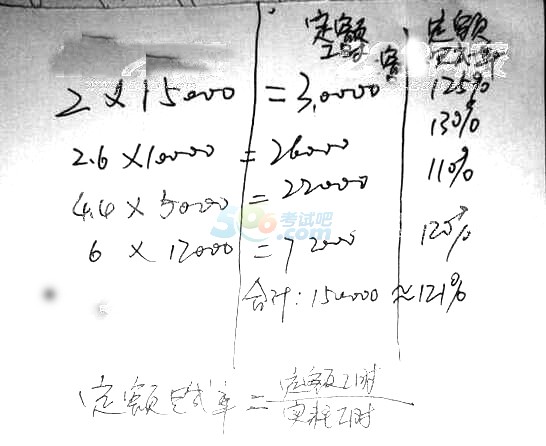 定额 定额
工时 实 完成率
2 × 15000 = 3,0000 125%
130%
2.6 × 10000 = 26000
110%
4.4 × 5000 = 22000
566考试吧
6 × 12000 = 72000 120%
合计: 150000 ≈ 121%
定额完成率 = 定额工时
实耗工时